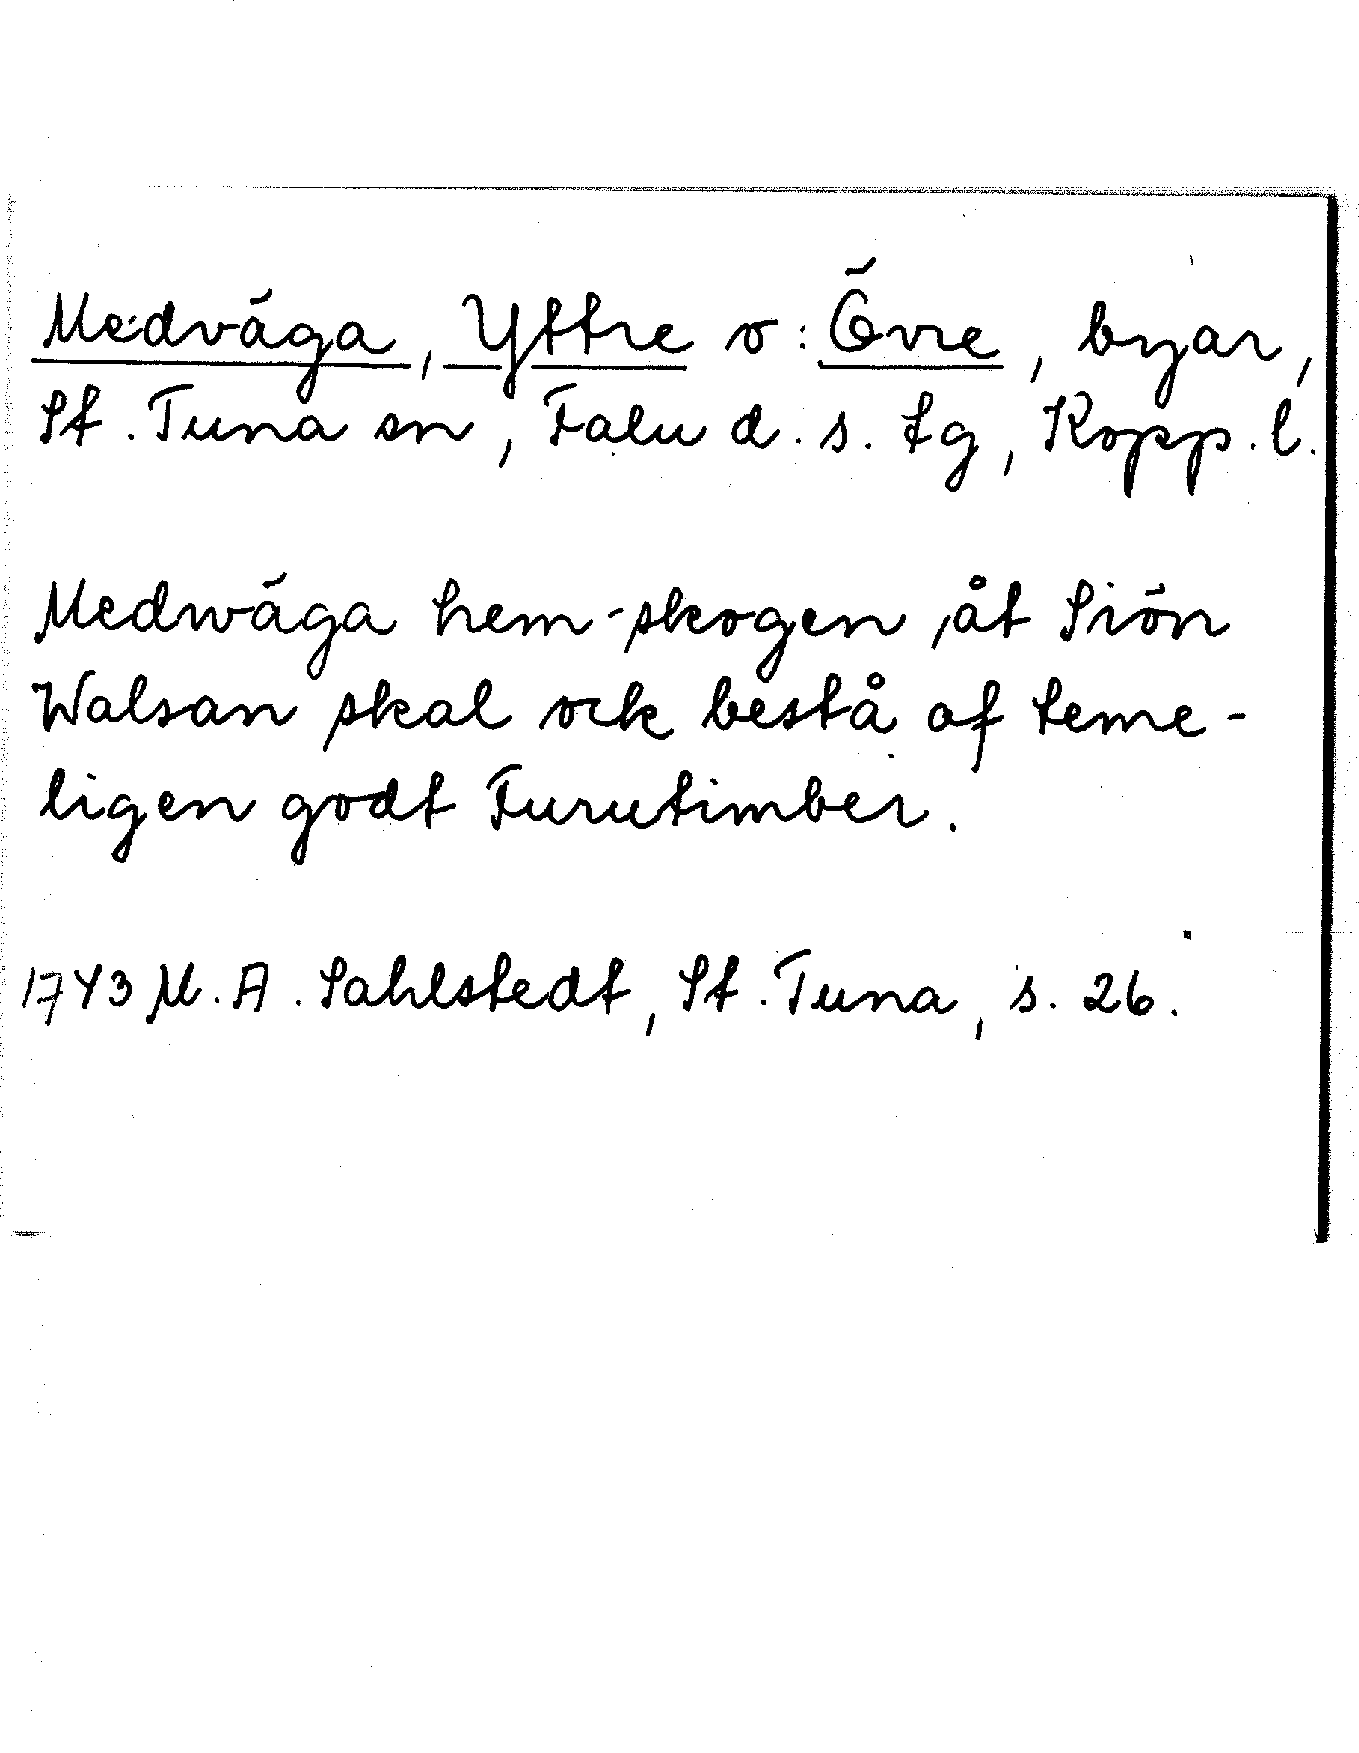 Medväga, Yttre o: Övre, byar,
St. Tuna sn, Falu d. s. tg, Kopp. l.
Medwäga hem-skogen, åt Siön
Walsan skal ock bestå af teme-
ligen godt Furutimber.
1743 M. A. Sahlstedt, St. Tuna, s. 26.